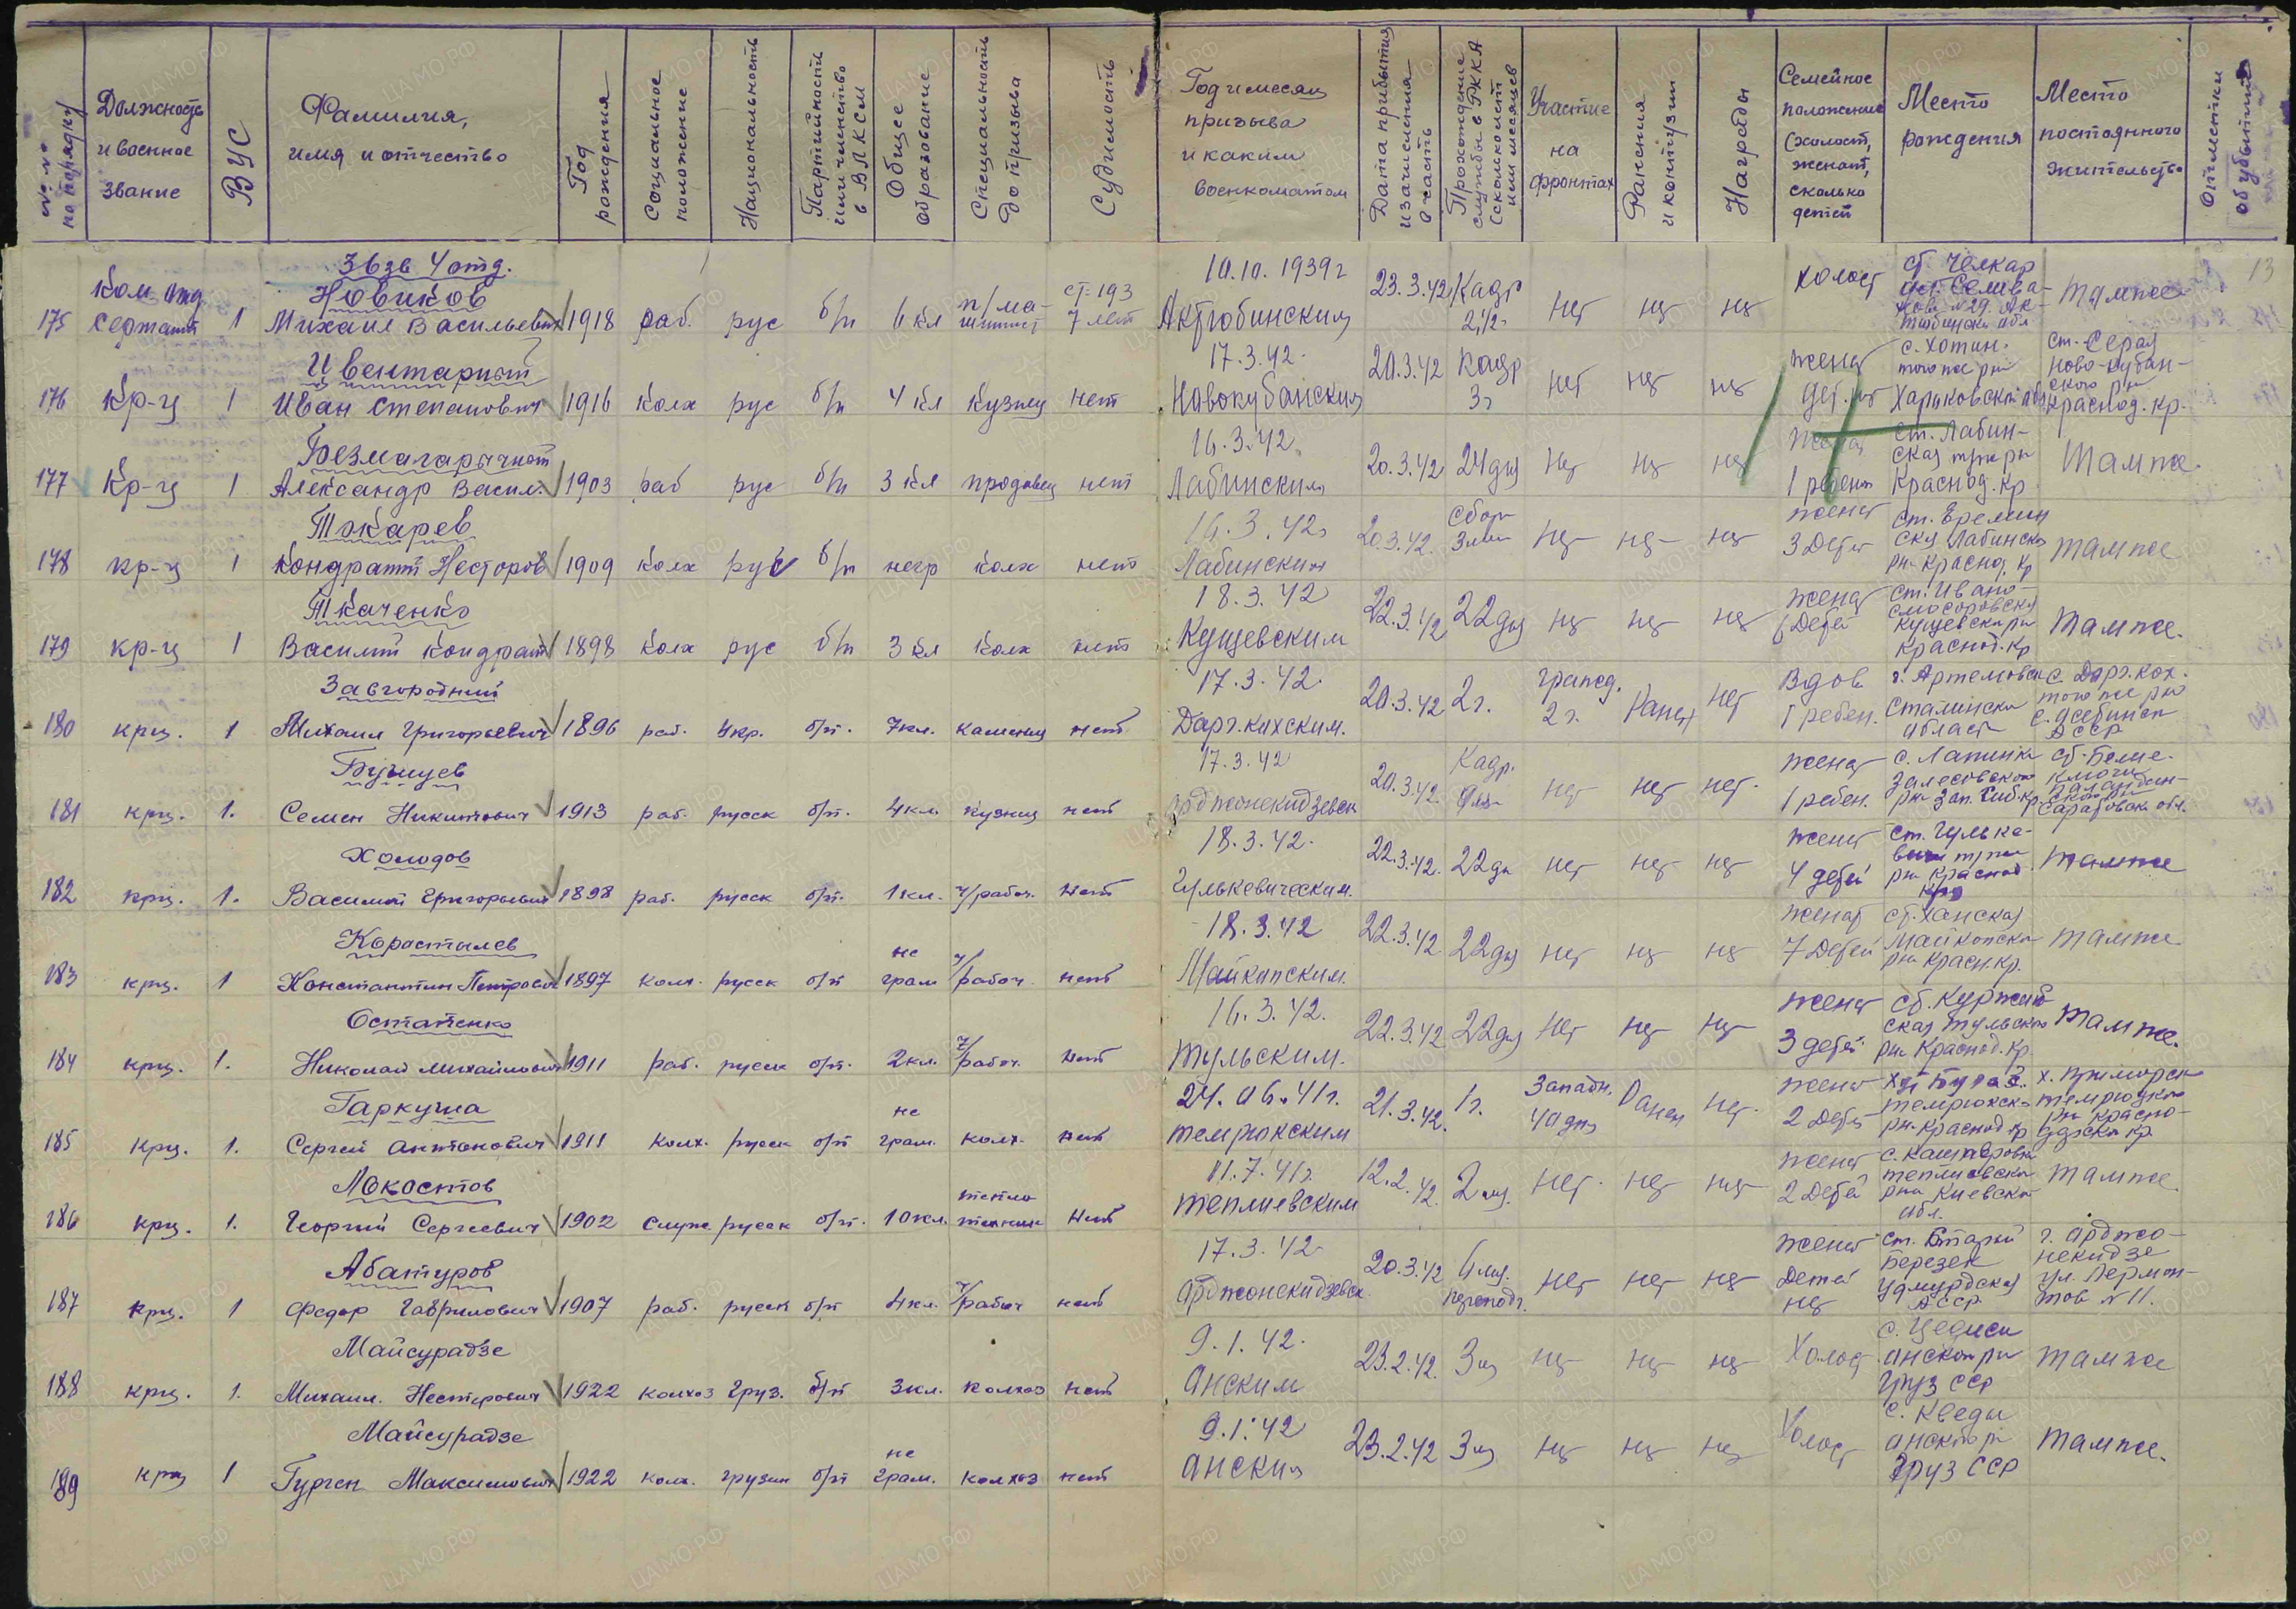 №№ по порядку
Должность и военное звание
ВУС
Фамилия, имя и отчество
Год рождения
Социальное положение
Национальность
Партийность или членство в ВЛКСМ
Общее образование
Специальность до призыва
Судимость
Год и месяц призыва и каким военкоматом
Дата прибытия и зачисления в часть
Прохождение службы в РККА (сколько лет или месяцев
Участие на фронтах
Ранения и контузии
Награды
Семейное положение (холост, женат, сколько детей
Место рождения
Место постоянного жительства
Отметки об убытии
3 взв 4 отд.
13
175 Ком. отд сержант 1 Новиков Михаил Васильевич 1918 раб. рус б/п 6 кл ст. 193 7 лет 10.10.1939г Актюбинским 23.3.42 Кадр 2 1/2 нет нет нет холост ст. Челкар там же
176 Кр-ц 1 Ивентарный Иван Степанович 1916 колх рус б/п 4 кл кузнец нет 17.3.42. Новокубанским 20.3.42 Кадр 3г нет нет нет женат дет. нет с. Хотин. того же рн Харьковской обл ст. Серая Ново-Кубанского рн Краснод. кр.
177 Кр-ц 1 Безмагарычный Александр Васил. 1903 раб рус б/п 3 кл продавец нет 16.3.42. Лабинским 20.3.42 24 дня нет нет нет женат 1 ребенок ст. Лабинская того же рн Краснод. Кр там же.
178 кр-ц 1 Токарев Кондратий Несторов 1909 колх рус б/п негр колх нет 16.3.42г Лабинским 20.3.42. Сбор 3 мес нет нет нет женат 3 детей рн Краснод. Кр там же
179 кр-ц 1 Ткаченко Василий Кондрат 1898 колх рус б/п 3 кл колх нет 18.3.42 Кущевским 22.3.42 22 дня нет нет нет женат 6 детей Кущевский рн Краснод. Кр там же.
180 крц. 1 Завгородний Михаил Григорьевич 1896 раб. укр. б/п. 7 кл. каменщ нет 17.3.42. Дарг.кохским. 20.3.42 2 г. гражд. 2 г. Ранен нет Вдов 1 ребен. г. Артемовск Сталинской области с. Дарг. кох. того же рн АССР
181 крц. 1. Бузицев Семен Никитович 1913 раб. русск б/п. 4 кл. кузнец нет 17.3.42 Орджоникидзевск 20.3.42. Кадр. нет нет нет. женат 1 ребен. с. Лапинка Залесовского рн Зап. Сиб. кр. Саратовск. обл.
182 крц. 1. Холодов Василий Григорьевич 1898 раб. русск б/п. 1 кл. ч/рабоч. нет 18.3.42. Гулькевическим. 22.3.42. 22 дн нет нет нет женат 4 детей там же
183 крц. 1 Коростылев Константин Петрович 1897 колх. русск б/п не грам ч/рабоч. нет 18.3.42 Майкопским. 22.3.42. 22 дня нет нет нет женат 7 детей ст. Ханская Майкопск рн Красн. кр. там же
184 крц. 1. Остапенко Николай Михайлович 1911 раб. русск б/п. 2 кл. ч/рабоч. нет 16.3.42. Тульским. 22.3.42 22 дня нет нет нет женат 3 детей ст. Куржипская Тульского рн Краснод. Кр. там же.
185 крц. 1. Гаркуша Сергей Антонович 1911 колх. русск б/п не грам. колх. нет 24.06.41г. Темрюкским 21.3.42. 1 г. Западн. 40 дня Ранен нет. женат 2 детей Темрюкск. рн. Краснод. кр х. Приморск Темрюкского рн Краснодарск кр.
186 крц. 1. Локостов Георгий Сергеевич 1902 служ русск б/п. 10 кл. тепло техник нет 11.7.41г. Теплиевским 12.2.42. 2 мц. нет. нет нет женат 2 детей с. Кашперовка рн Киевской обл. там же
187 крц. 1 Абатуров Федор Гаврилович 1907 раб. русск б/п 4 кл. ч/рабоч нет 17.3.42 Орджоникидзевск. 20.3.42 переподг. нет нет нет женат детей нет Удмурдская АССР г. Орджоникидзе ул. Лермонтов № 11.
188 крц. 1. Майсурадзе Михаил. Нестерович 1922 колхоз груз. б/п 3 кл. колхоз нет 9.1.42. Онским 23.2.42. 3 м нет нет нет Холост с. Цедиси Онского рн Груз ССР там же
189 крц 1 Майсурадзе Гурген Максимович 1922 колх. грузин б/п не грам. колхоз нет 9.1.42 Онским 23.2.42 3 м нет нет нет Холост с. Кведи Онского рн Груз ССР там же.
ЦАМО.РФ